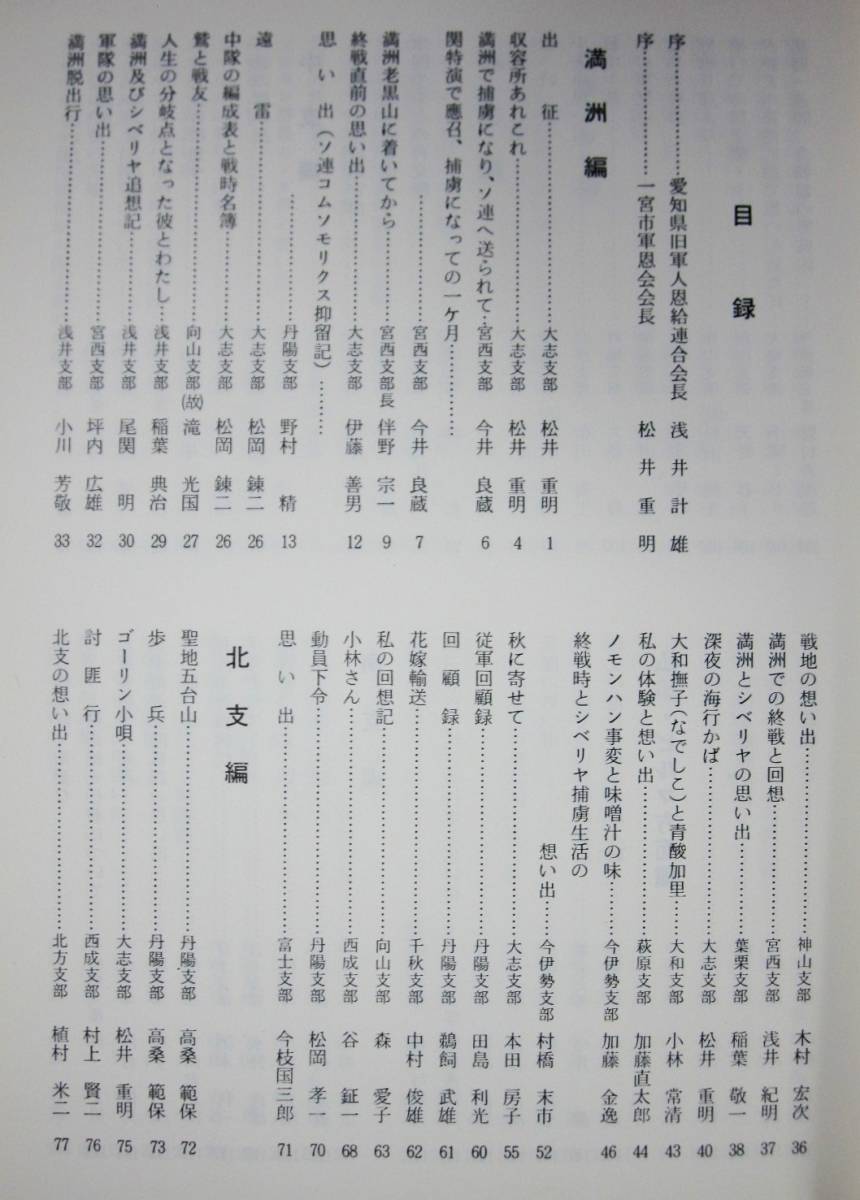 目録
序…………愛知県旧軍人恩給連合会長 浅井計雄
序…………一宮市軍恩会会長 松井重明
満洲編
出征…………大志支部 松井重明 1
収容所あれこれ…………大志支部 松井重明 4
満洲で捕虜になり、ソ連へ送られて…宮西支部 今井良蔵 6
関特演で應召、捕虜になっての一ケ月…………
…………宮西支部 今井良蔵 7
満洲老黒山に着いてから…………宮西支部長 伴野宗一 9
終戦直前の思い出…………大志支部 伊藤善男 12
思い出(ソ連コムソモリクス抑留記)…………
…………丹陽支部 野村精 13
遠雷…………大志支部 松岡錬二 26
中隊の編成表と戦時名簿…………大志支部 松岡錬二 26
鷲と戦友…………向山支部(故)滝光国 27
人生の分岐点となった彼とわたし…浅井支部 稲葉典治 29
満洲及びシベリヤ追想記…………浅井支部 尾関明 30
軍隊の思い出…………宮西支部 坪内広雄 32
満洲脱出行…………浅井支部 小川芳敬 33
戦地の想い出…………神山支部 木村宏次 36
満洲での終戦と回想…………宮西支部 浅井紀明 37
満洲とシベリヤの思い出…………葉栗支部 稲葉敬一 38
深夜の海行かば…………大志支部 松井重明 40
大和撫子(なでしこ)と青酸加里…………大和支部 小林常清 43
私の体験と想い出…………萩原支部 加藤直太郎 44
ノモンハン事変と味噌汁の味…………今伊勢支部 加藤金逸 46
終戦時とシベリヤ捕虜生活の
想い出…………今伊勢支部 村橋末市 52
秋に寄せて…………大志支部 本田房子 55
従軍回顧録…………丹陽支部 田島利光 60
回顧録…………丹陽支部 鵜飼武雄 61
花嫁輸送…………千秋支部 中村俊雄 62
私の回想記…………向山支部 森愛子 63
小林さん…………西成支部 谷鉦一 68
動員下令…………丹陽支部 松岡孝一 70
思い出…………富士支部 今枝国三郎 71
北支編
聖地五台山…………丹陽支部 高桑範保 72
歩兵…………丹陽支部 高桑範保 73
ゴーリン小唄…………大志支部 松井重明 75
討匪行…………西成支部 村上賢二 76
北支の想い出…………北方支部 植村米二 77